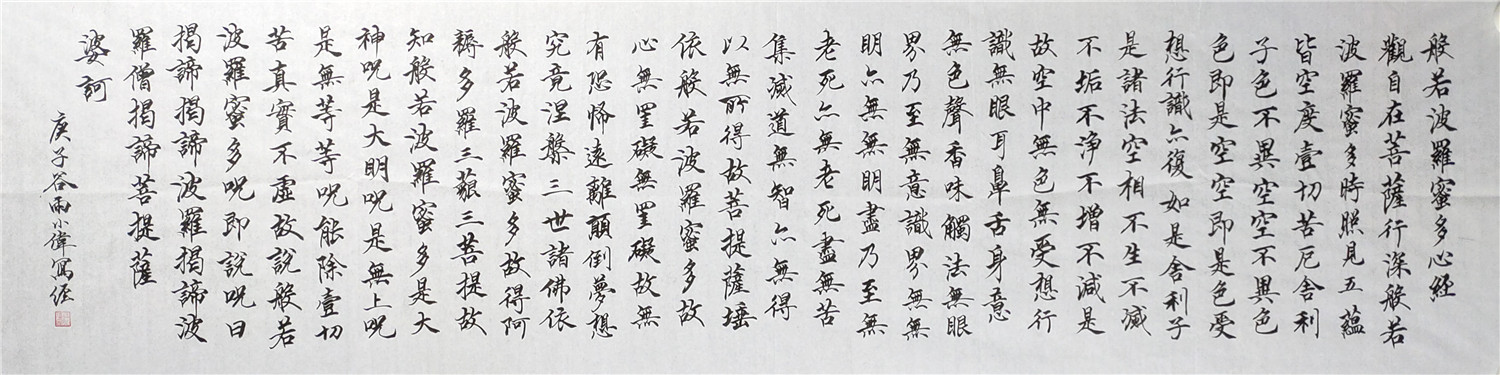 般若波羅蜜多心經
觀自在菩薩行深般若
波羅蜜多時照見五蘊
皆空度壹切苦厄舍利
子色不異空空不異色
色即是空空即是色受
想行識亦復如是舍利子
是諸法空相不生不滅
不垢不净不增不減是
故空中無色無受想行
識無眼耳鼻舌身意
無色聲香味觸法無眼
界乃至無意識界無無
明亦無無明盡乃至無
老死亦無老死盡無苦
集滅道無智亦無得
以無所得故菩提薩埵
依般若波羅蜜多故
心無罣礙無罣礙故無
有恐怖遠離顛倒夢想
究竟涅槃三世諸佛依
般若波羅蜜多故得阿
耨多羅三藐三菩提故
知般若波羅蜜多是大
神呪是大明呪是無上呪
是無等等呪能除壹切
苦真實不虛故說般若
波羅蜜多呪即說呪曰
揭諦揭諦波羅揭諦波
羅僧揭諦菩提薩
婆訶
庚子谷雨小偉寫經